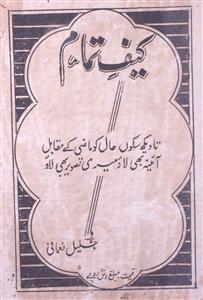 کیفِ تمام
تا دیکھ سکوں حال کو ماضی کے مقابل
آئینہ بھی لاؤ میری تصویر بھی لاؤ
جمیل نعمانی
قیمت مبلغ دس روپے